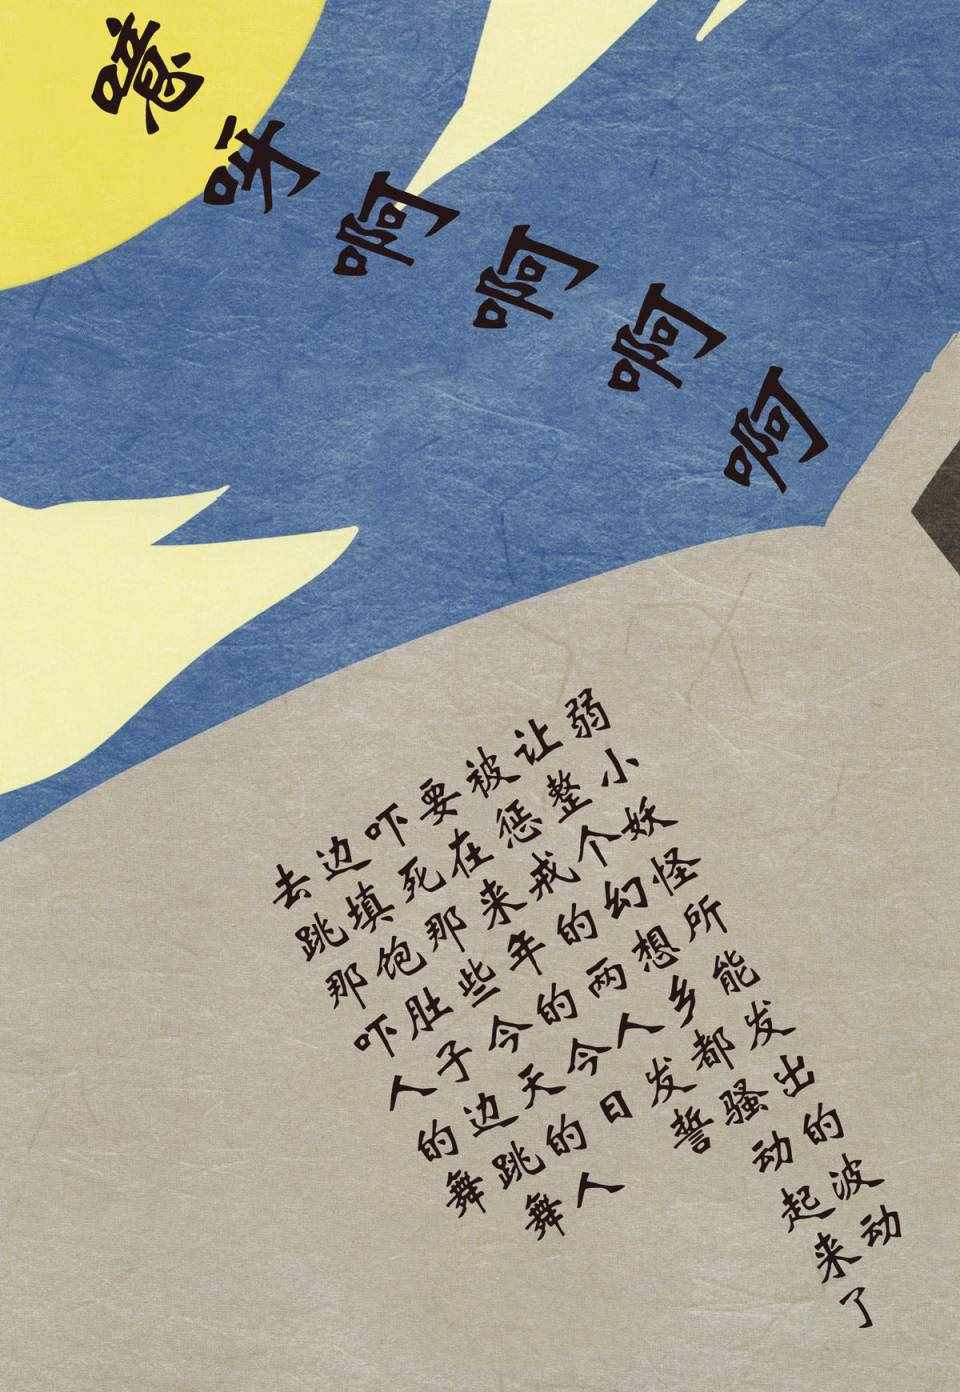 噫呀啊啊啊啊
弱小妖怪所能发出的波动
让整个幻想乡都骚动起来了
被惩戒的两人发誓
要在来年的今日
吓死那些今天的人
边填饱肚子边跳舞
去跳那吓人的舞